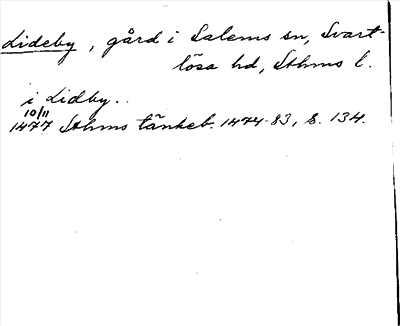 Lideby, gård i Salems sn, Svart-
lösa hd, Sthms l.
i Lidby..
10/11
1477 Sthms tänkeb. 1474-83, s. 134.